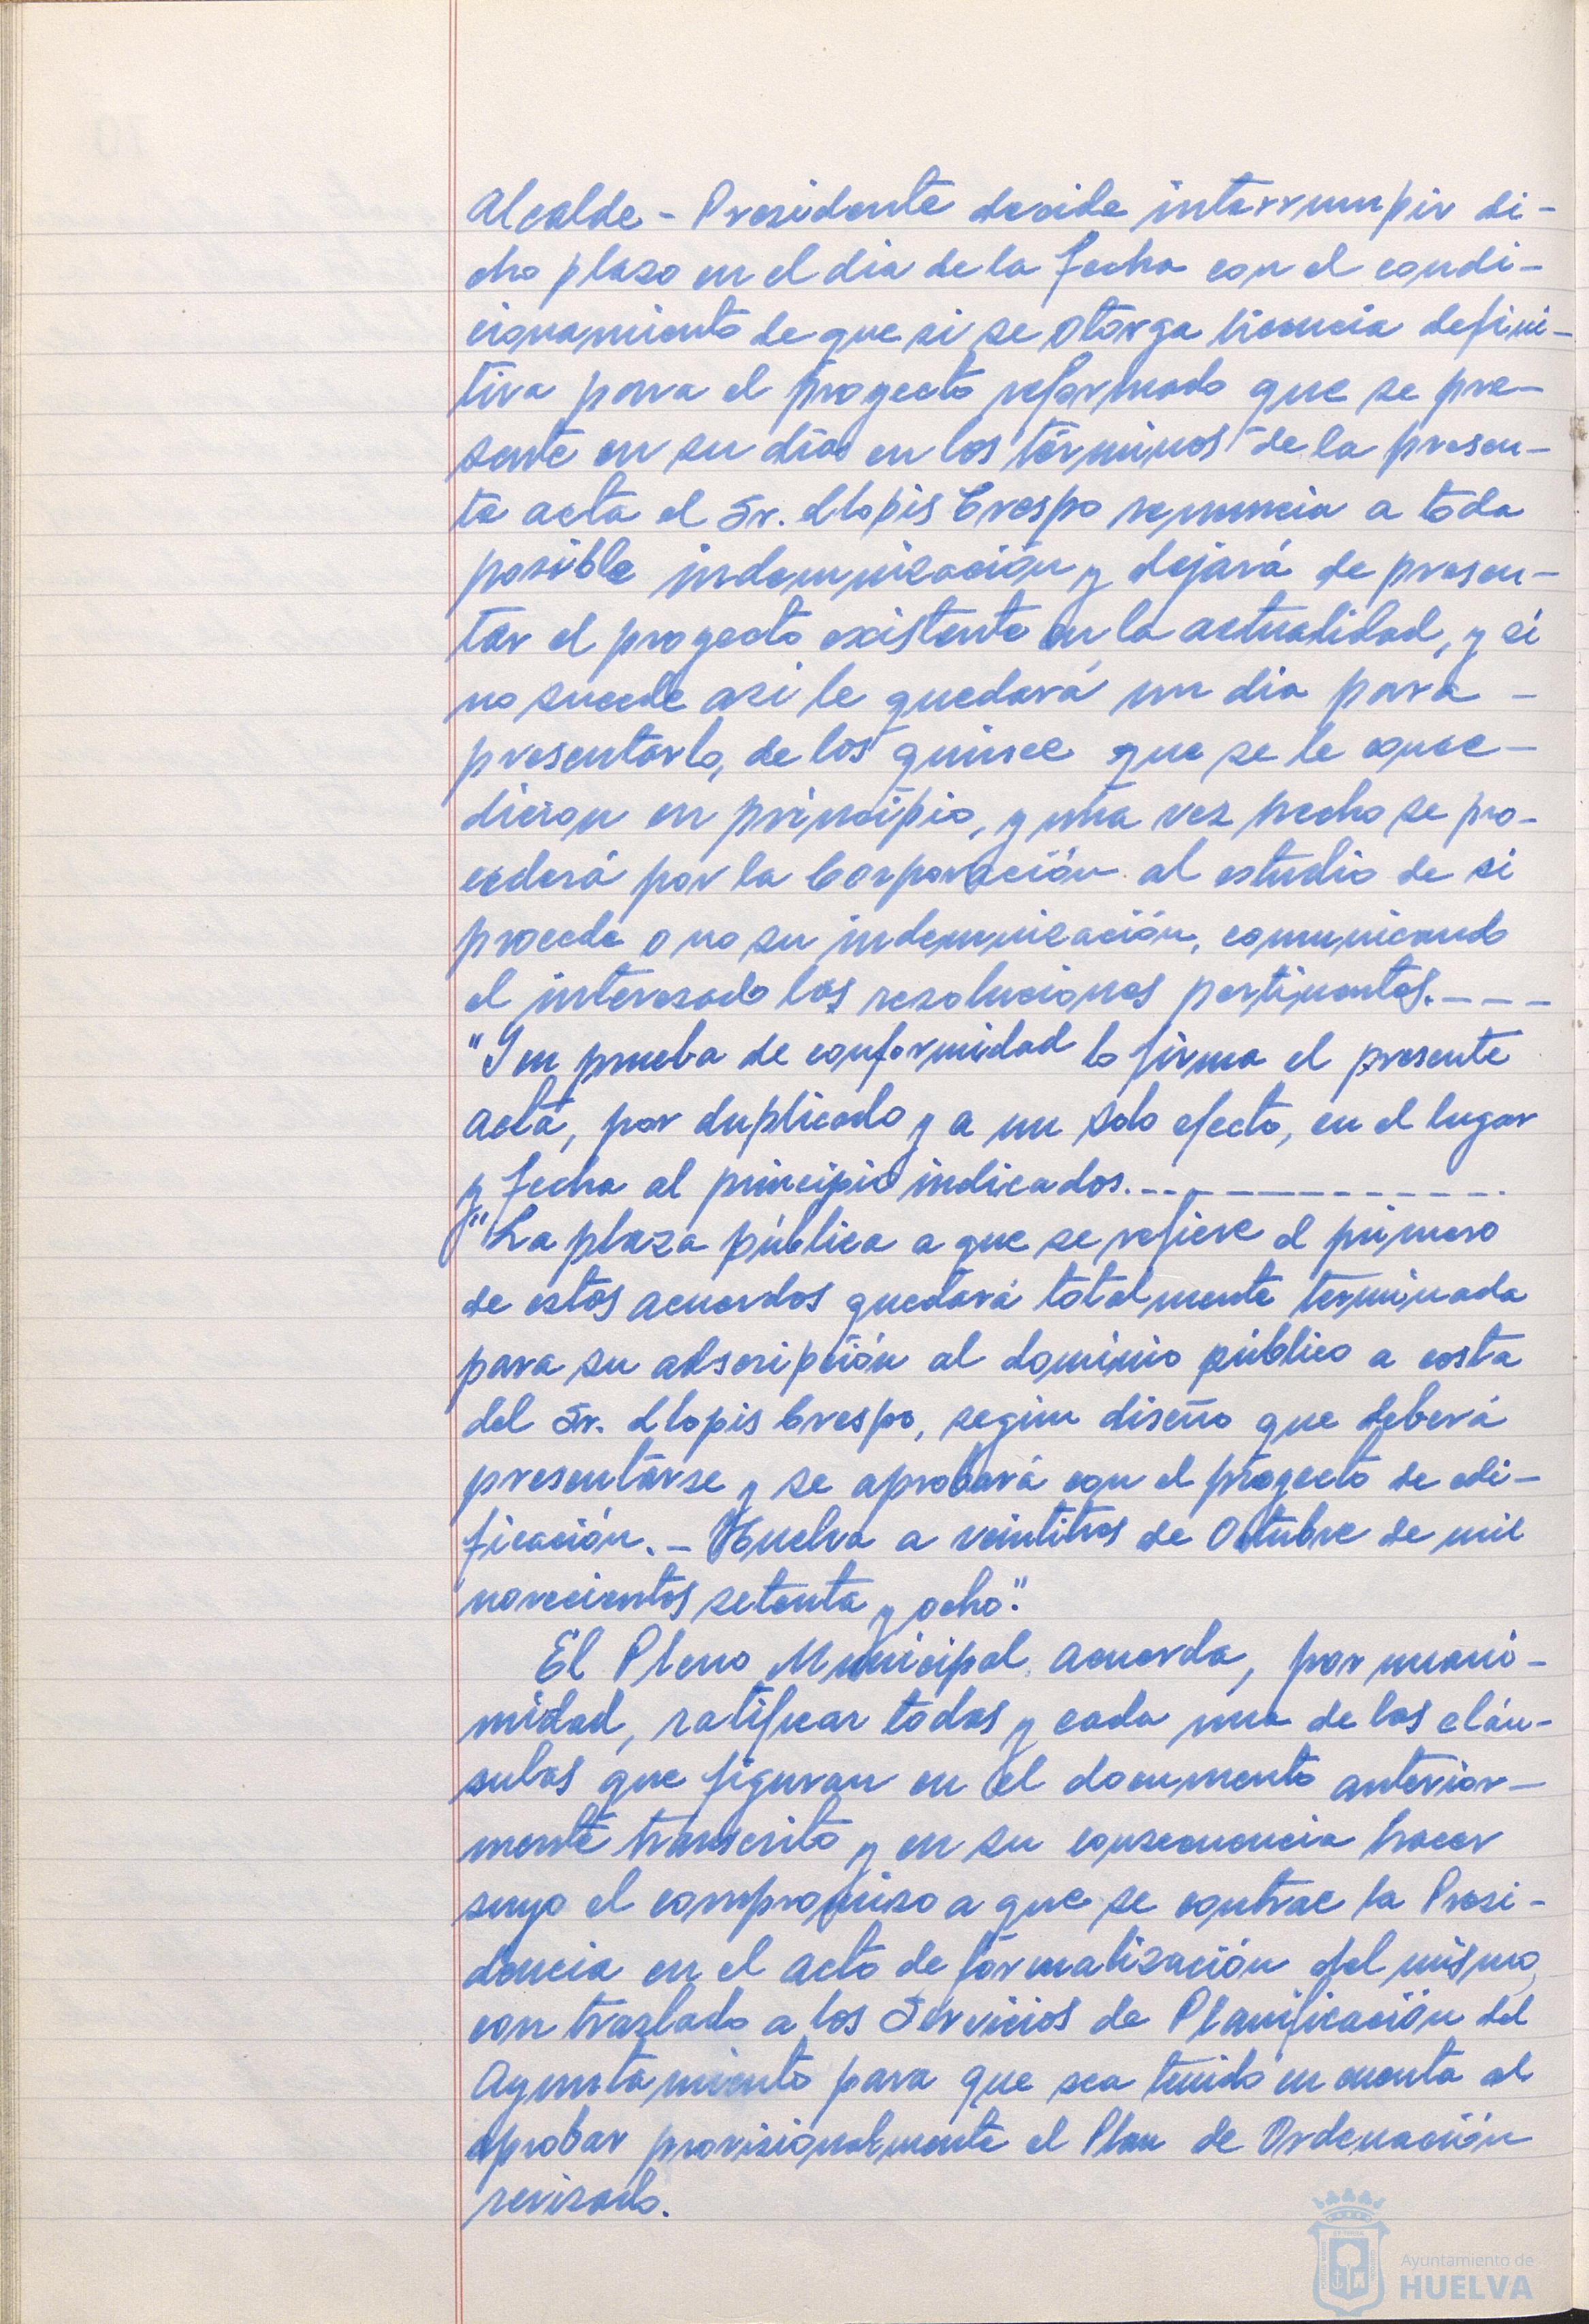 Alcalde - Presidente decide interrumpir di-
cho plazo en el dia de la fecha con el condi-
cionamiento de que si se otorga licencia defini-
tiva para el proyecto reformado que se pre-
sente en su día en los términos de la presen-
te acta el Sr. Llopis Crespo renuncia a toda
posible indemnización y dejará de presen-
tar el proyecto existente en la actualidad, y si
no sucede asi le quedará un dia para -
presentarlo, de los quince que se le conce-
dieron en principio, y una vez hecho se pro-
cederá por la Corporación al estudio de si
procede o no su indemnización, comunicando
al interesado las resoluciones pertinentes.----
"Y en prueba de conformidad lo firma el presente
acta, por duplicado y a un solo efecto, en el lugar
y fecha al principio indicados.--------------
"La plaza pública a que se refiere el primero
de estos acuerdos quedará totalmente terminada
para su adscripción al dominio público a costa
del Sr. Llopis Crespo, según diseño que deberá
presentarse y se aprobará con el proyecto de edi-
ficación.- Huelva a veintitres de Octubre de mil
novecientos setenta y ocho".
El Pleno Municipal acuerda, por unani-
midad, ratificar todas y cada una de las cláu-
sulas que figuran en el documento anterior-
mente transcrito y en su consecuencia hacer
suyo el compromiso a que se contrae la Presi-
dencia en el acto de formalización del mismo,
con traslado a los Servicios de Planificación del
Ayuntamiento para que sea tenido en cuenta al
aprobar provisionalmente el Plan de Ordenación
revisado.
Ayuntamiento de
HUELVA